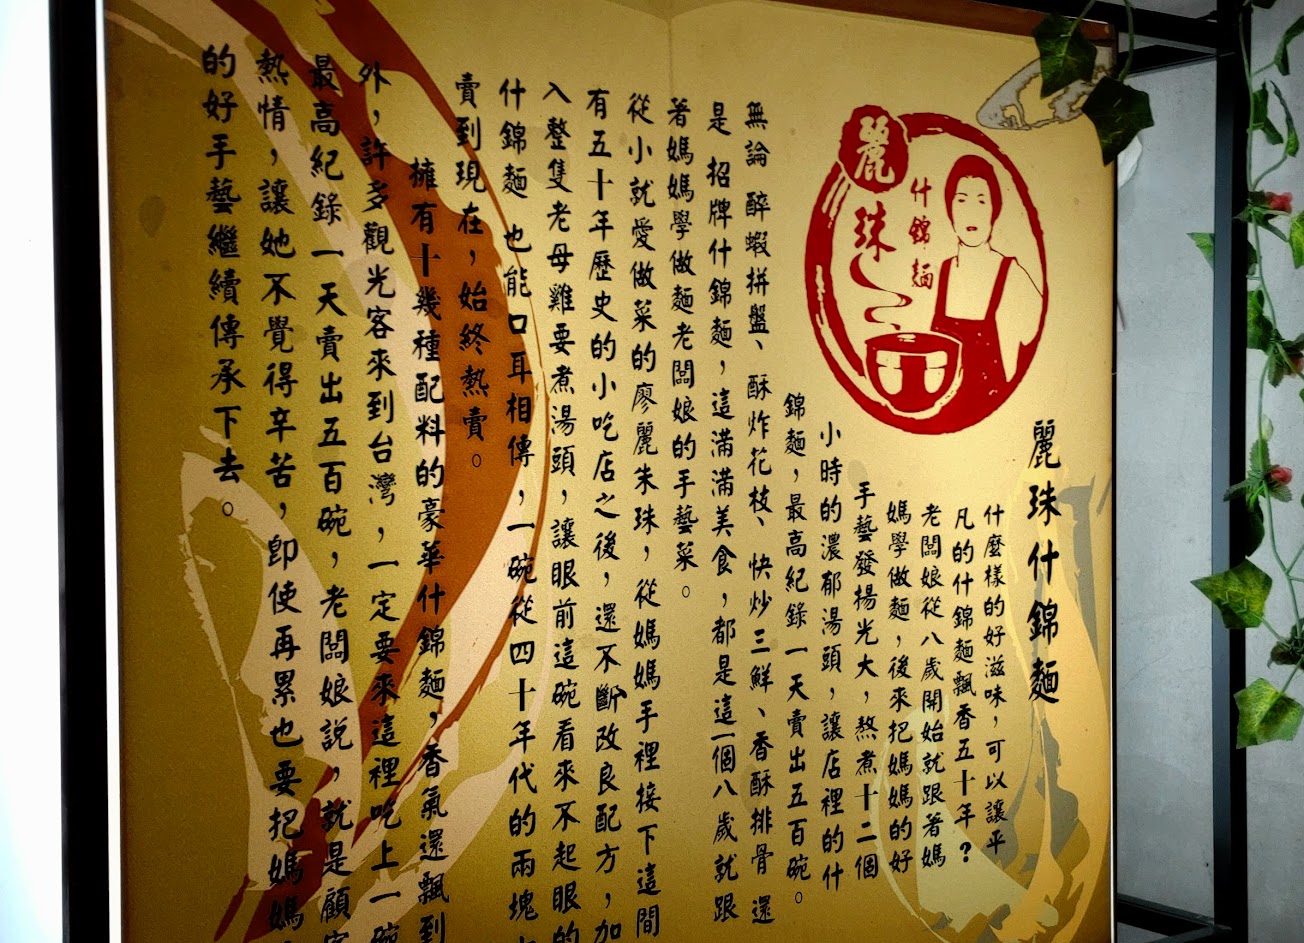 麗珠
什錦麵
麗珠什錦麵
什麼樣的好滋味，可以讓平
凡的什錦麵飄香五十年？
老闆娘從八歲開始就跟著媽
媽學做麵，後來把媽媽的好
手藝發揚光大，熬煮十二個
小時的濃郁湯頭，讓店裡的什
錦麵，最高紀錄一天賣出五百碗。
無論 醉蝦拼盤、酥炸花枝、快炒三鮮、香酥排骨 還
是 招牌什錦麵，這滿滿美食，都是這一個八歲就跟
著媽媽學做麵老闆娘的手藝菜。
從小就愛做菜的廖麗朱珠，從媽媽手裡接下這間
有五十年歷史的小吃店之後，還不斷改良配方，加
入整隻老母雞要煮湯頭，讓眼前這碗看來不起眼的
什錦麵 也能口耳相傳，一碗從四十年代的兩塊
賣到現在，始終熱賣。
擁有十幾種配料的豪華什錦麵，香氣還飄到
外，許多觀光客來到台灣，一定要來這裡吃上一碗
最高紀錄一天賣出五百碗，老闆娘說，就是顧客
熱情，讓她不覺得辛苦，即使再累也要把媽媽
的好手藝繼續傳承下去。